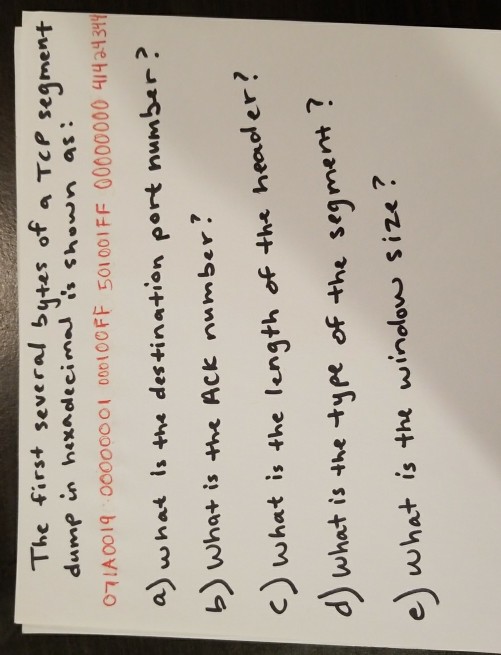 The first several bytes of a TCP segment
dump in hexadecimal is shown as:
071A0019 00000001 000100FF 501001FF 00000000 41424344
a) what is the destination port number?
b) What is the ACK number?
c) What is the length of the header?
d) What is the type of the segment?
e) What is the window size?